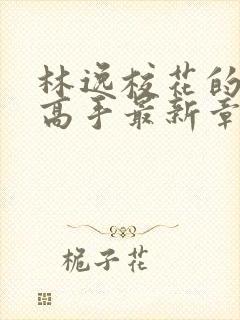 林逸校花的
高手最新章
栀子花